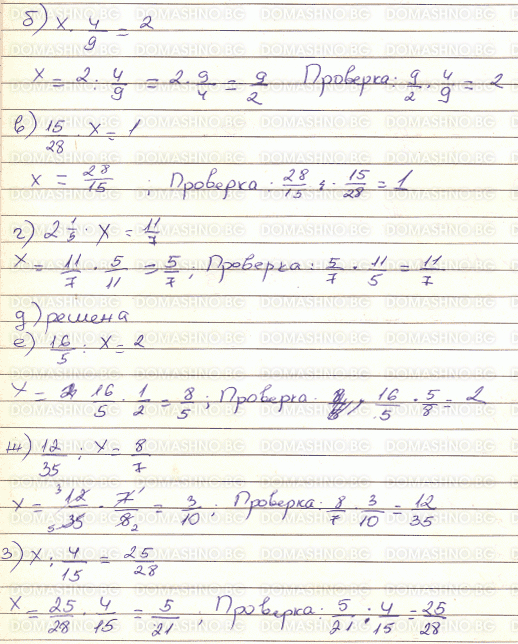 б) x · 4/9 = 2
x = 2 : 4/9 = 2 · 9/4 = 9/2 Проверка: 9/2 · 4/9 = 2
в) 15/28 · x = 1
x = 28/15 ; Проверка: 28/15 · 15/28 = 1
г) 2 1/5 · x = 11/7
x = 11/7 · 5/11 = 5/7 ; Проверка: 5/7 · 11/5 = 11/7
д) решена
е) 16/5 : x = 2
x = 16/5 · 1/2 = 8/5 ; Проверка: 16/5 · 5/8 = 2
ж) 12/35 : x = 8/7
x = 12/35 · 7/8 = 3/10 ; Проверка: 8/7 · 3/10 = 12/35
з) x : 4/15 = 25/28
x = 25/28 · 4/15 = 5/21 ; Проверка: 5/21 : 4/15 = 25/28